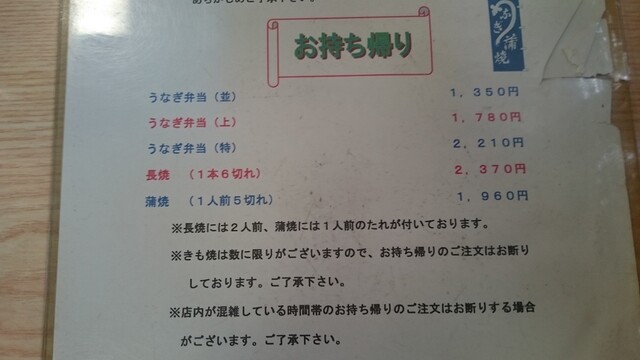 あらかじめご了承下さい。
うなぎ蒲焼
お持ち帰り
うなぎ弁当（並） 1，350円
うなぎ弁当（上） 1，780円
うなぎ弁当（特） 2，210円
長焼 （1本6切れ） 2，370円
蒲焼 （1人前5切れ） 1，960円
※長焼には2人前、蒲焼には1人前のたれが付いております。
※きも焼は数に限りがございますので、お持ち帰りのご注文はお断り
しております。ご了承下さい。
※店内が混雑している時間帯のお持ち帰りのご注文はお断りする場合
がございます。ご了承下さい。